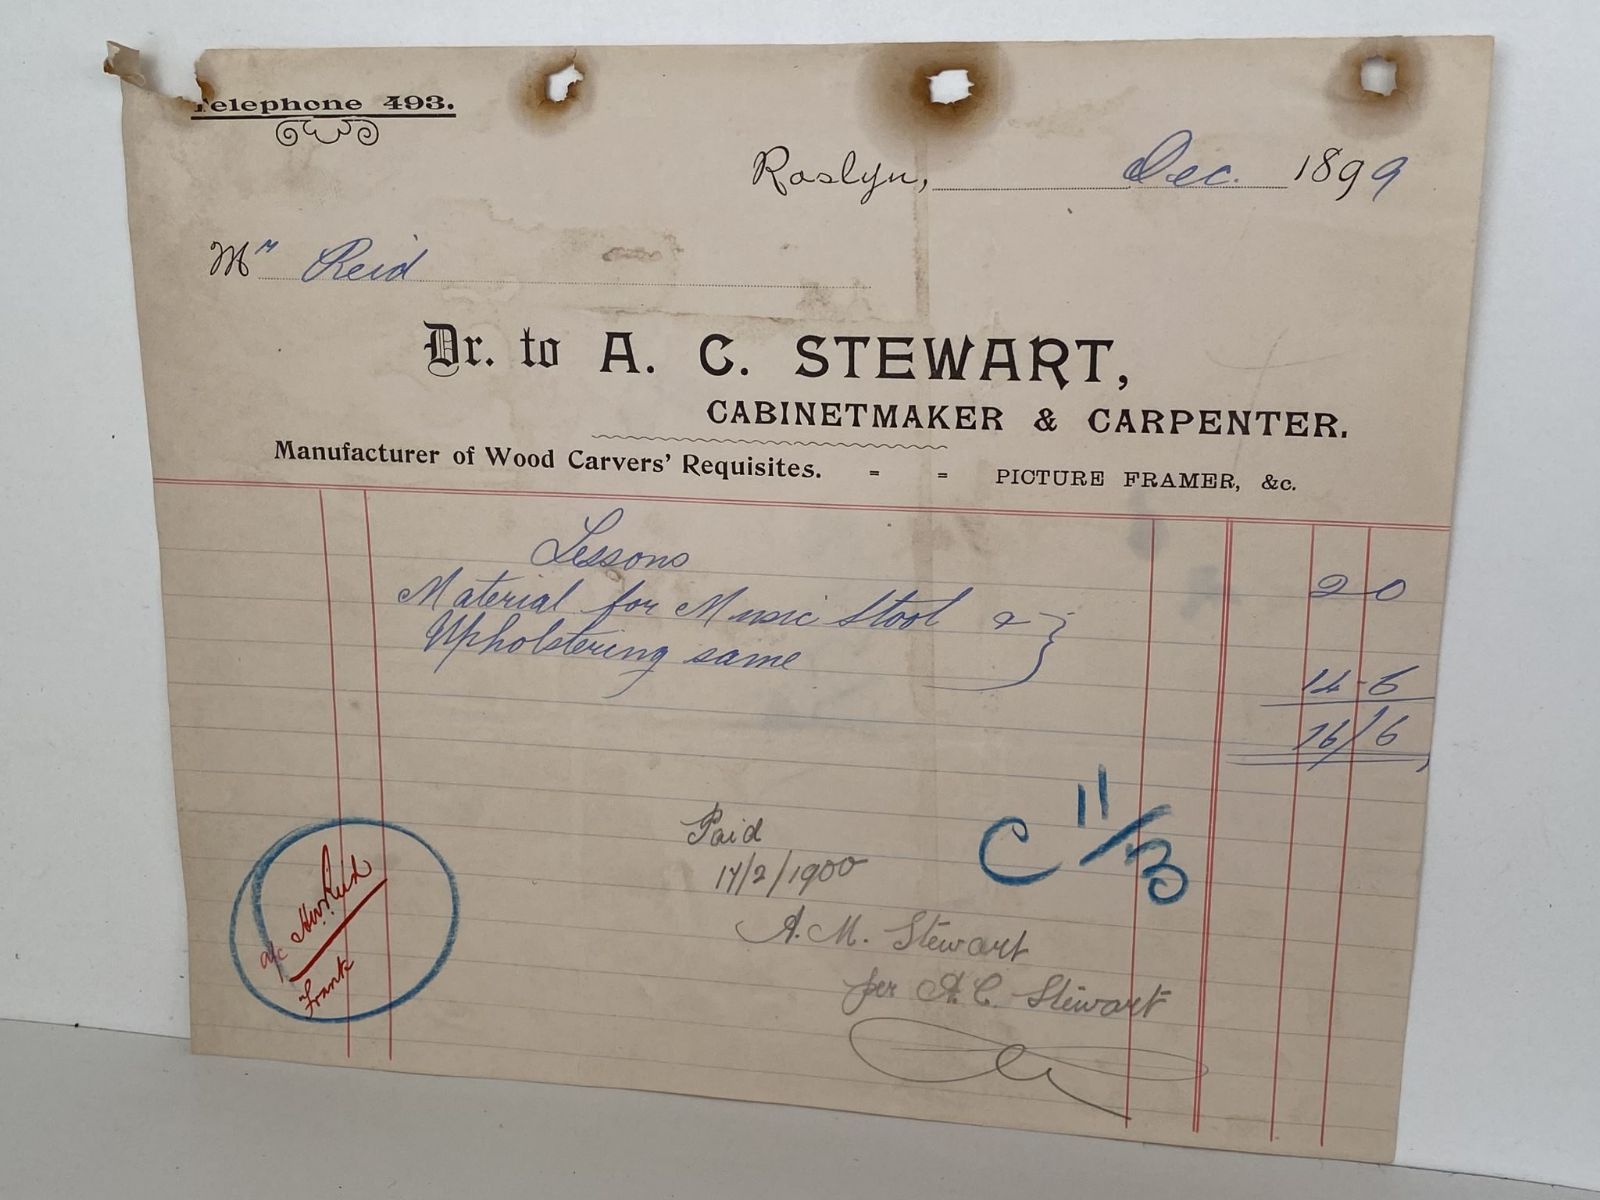 Telephone 493.
Roslyn, Dec. 1899
Mr Reid
Dr. to A. C. STEWART,
CABINETMAKER & CARPENTER.
Manufacturer of Wood Carvers' Requisites. = = PICTURE FRAMER, &c.
Lessons 2 0
Material for Music Stool &
Upholstering same 14-6
16/6
C 11/3
Paid
17/2/1900
A. M. Stewart
per A. C. Stewart
a/c Reid
Frank